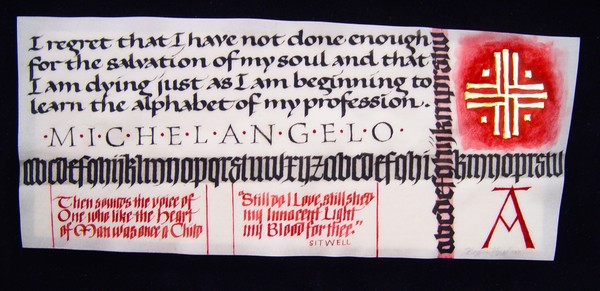 I regret that I have not done enough
for the salvation of my soul and that
I am dying just as I am beginning to
learn the alphabet of my profession.
·M·I·C·H·E·L·A·N·G·E·L·O·
abcdefghijklmnopqrstuvwxyzabcdefghijklmnopqrstuv
abcdefghijklmnopqrstuv
Then sounds the voice of
One who like the heart
of Man was once a Child
"Still do I Love, still shed
my Innocent Light
my Blood for thee."
SITWELL
A